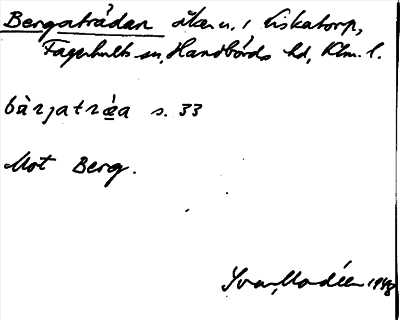 Bergatrådan åker u. i Fiskatorp,
Fagerhults sn, Handbörds hd, Klm. l.
bàrjatràa s. 33
Mot Berg.
Ivar Modéer 1948